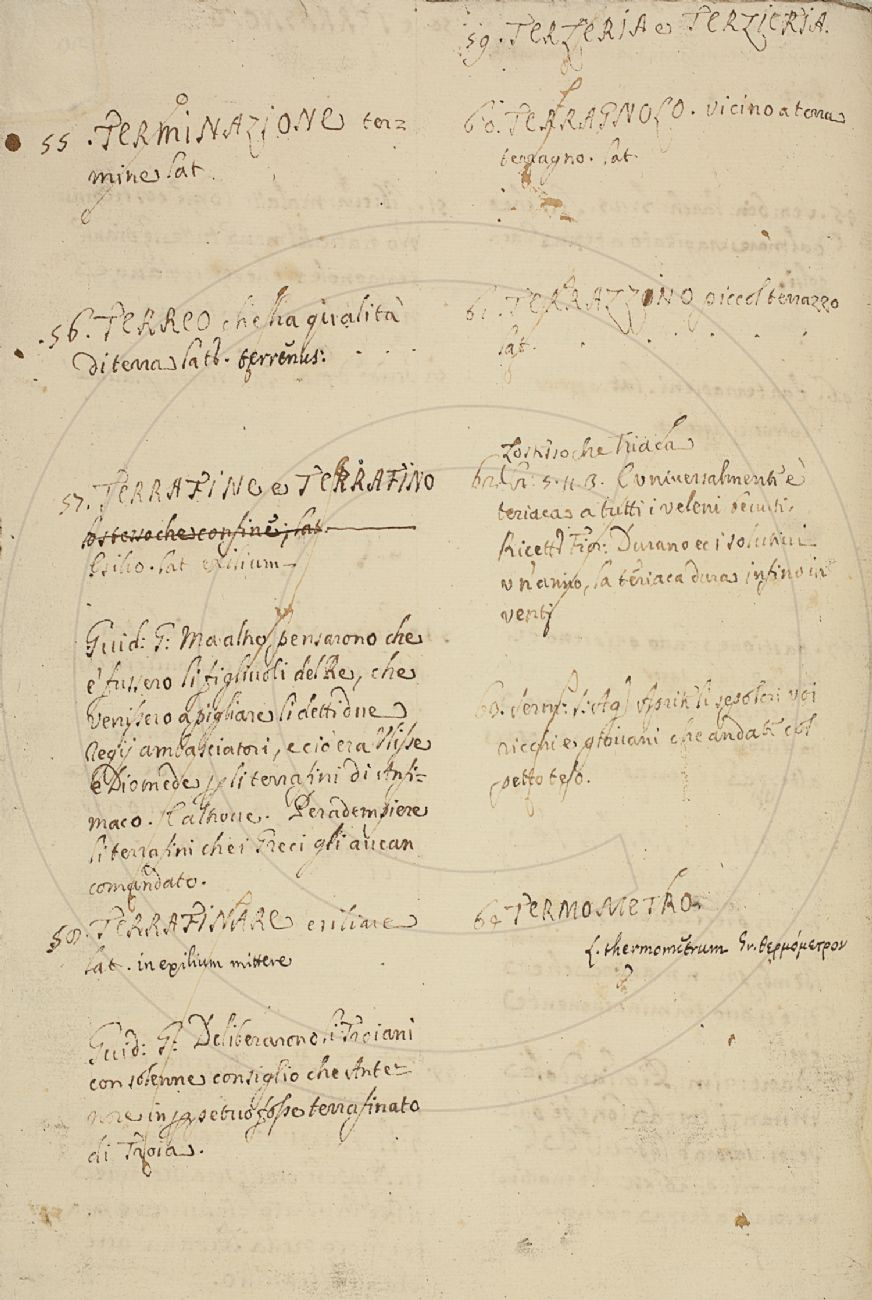 55. TERMINAZIONE ter=
mine lat.
56. TERREO che ha qualità
di terra lat. terrenus.
57. TERRAFINE e TERRAFINO
lo stesso che confine, lat.
Esilio. lat exilium
Guid: G: Ma altri pensarono che
e' fussero li figliuoli del Re, che
venissero a pigliare li detti due
Regij ambasciatori, e ciò era Ulisse
e Diomede li terrafini di Ansi=
maco. E altrove. Per adempiere
li terrafini che i Greci gli aucan
comandato.
58. TERRAFINARE esiliare
lat. in exilium mittere
Guid: G: Deliberarono li Troiani
con solenne consiglio che Ante=
nore in perpetuo fosse terrafinato
di Troia.
59. TERZERIA e TERZIERIA.
60. TERRAGNOLO. vicino a terra
terragno. lat.
61. TERRAZZINO piccol terrazzo
lat.
Lo stesso che Triaca
62. 5. 113. E universalmente è
teriaca a tutti i veleni
Ricett: Fior: Durano eci solutivi
un'anno, la teriaca dura infino in
venti
63. Serm: S: Ag: voi
ricchi e giovani che andate col
petto teso.
64 TERMOMETRO.
L. thermometrum Gr. θερμόμετρον